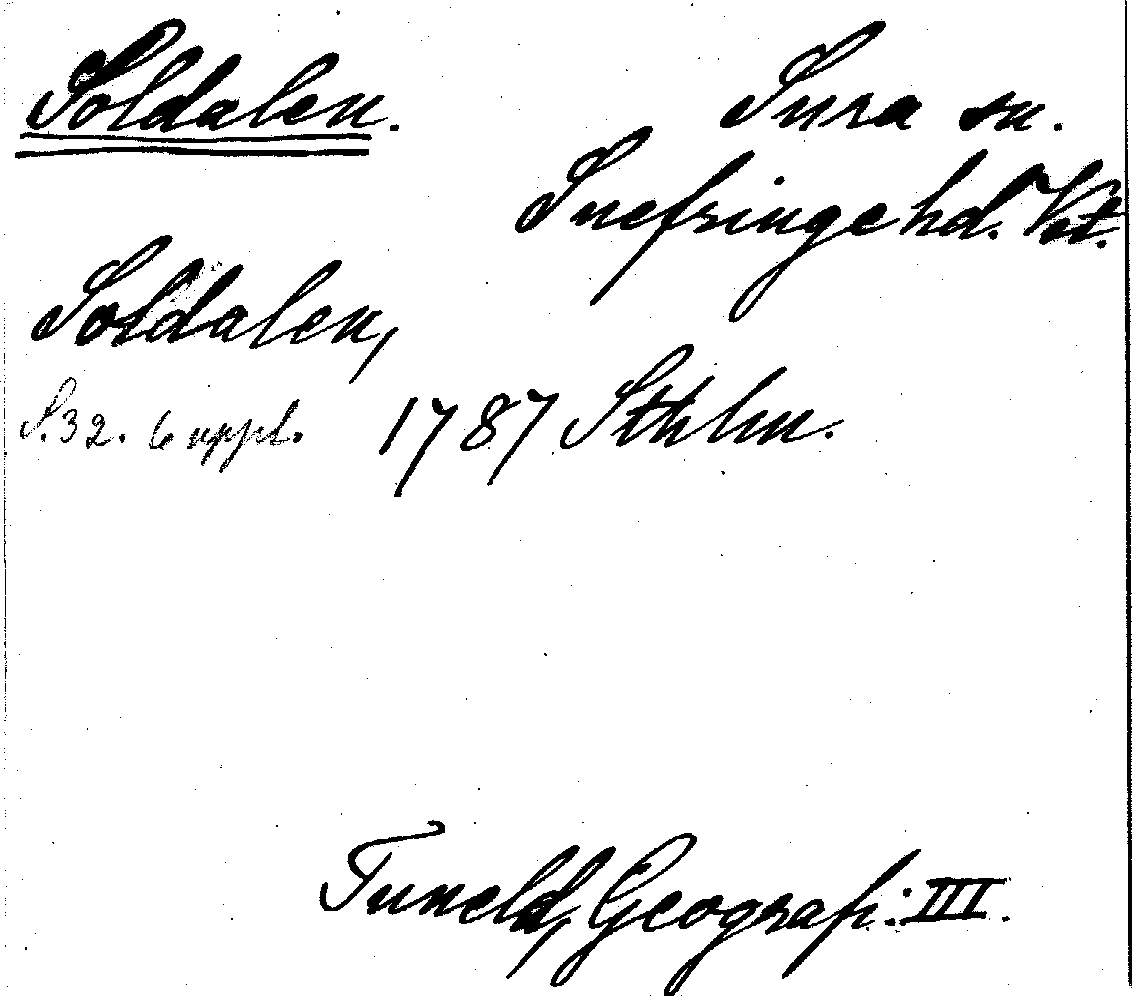 Soldalen.
Sura sn.
Snefringe hd. Vst.
Soldalen,
S. 32. 6 uppl. 1787 Sthlm.
Tuneld, Geografi: III.